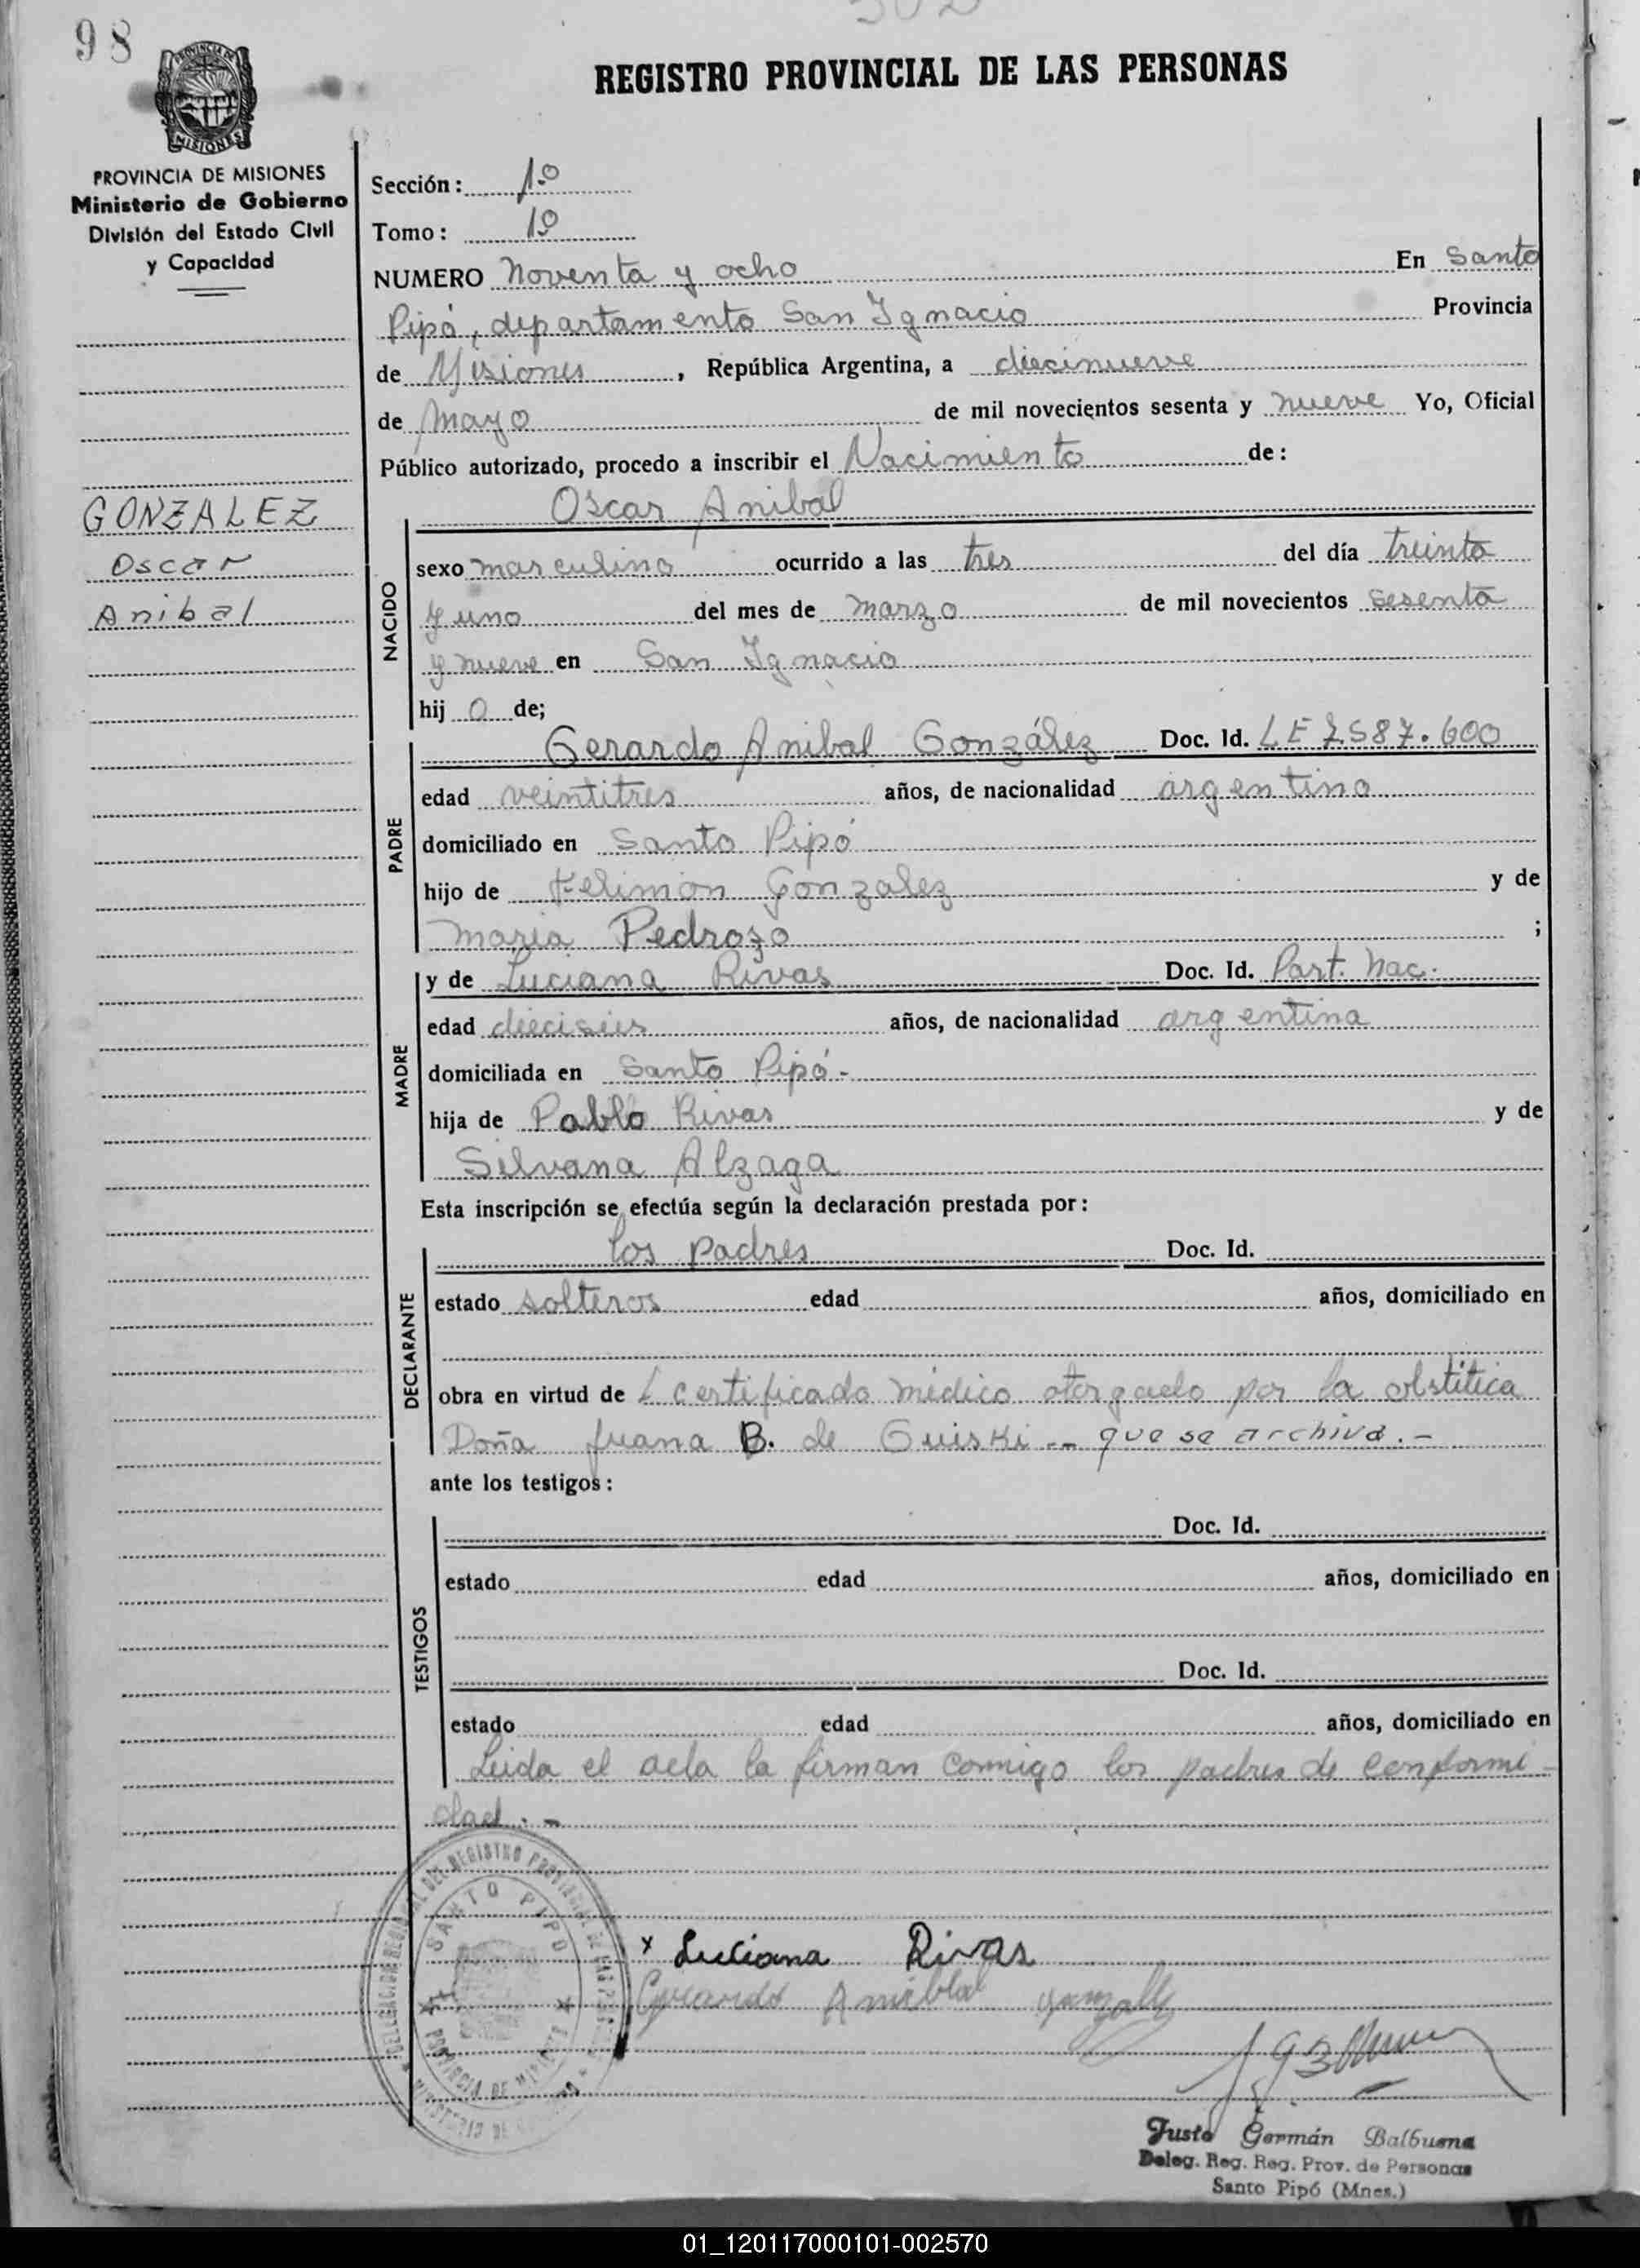 98
REGISTRO PROVINCIAL DE LAS PERSONAS
PROVINCIA DE MISIONES
Ministerio de Gobierno
División del Estado Civil
y Capacidad
GONZALEZ
Oscar
Anibal
Sección: 1º
Tomo: 1º
NUMERO Noventa y ocho En Santo
Pipó, departamento San Ignacio Provincia
de Misiones, República Argentina, a diecinueve
de Mayo de mil novecientos sesenta y nueve Yo, Oficial
Público autorizado, procedo a inscribir el Nacimiento de:
Oscar Anibal
NACIDO
sexo masculino ocurrido a las tres del día treinta
y uno del mes de marzo de mil novecientos sesenta
y nueve en San Ignacio
hijo de;
PADRE
Gerardo Anibal González Doc. Id. LE 7.587.600
edad veintitres años, de nacionalidad argentino
domiciliado en Santo Pipó
hijo de Felimon Gonzalez y de
maria Pedrozo ;
MADRE
y de Luciana Rivas Doc. Id. Part. Nac.
edad dieciseis años, de nacionalidad argentina
domiciliada en Santo Pipó-
hija de Pablo Rivas y de
Silvana Alzaga
Esta inscripción se efectúa según la declaración prestada por:
DECLARANTE
los padres Doc. Id.
estado solteros edad años, domiciliado en
obra en virtud de certificado médico otorgado por la obstitica
Doña Juana B. de Guiski -- que se archiva.-
ante los testigos:
TESTIGOS
Doc. Id.
estado edad años, domiciliado en
Doc. Id.
estado edad años, domiciliado en
Leida el acta la firman conmigo los padres de conformi-
dad.-
SANTO PIPO
PROVINCIA DE MISIONES
x Luciana Rivas
Gerardo Anibal
Justo Germán Balbuena
Deleg. Reg. Reg. Prov. de Personas
Santo Pipó (Mnes.)
01_120117000101-002570